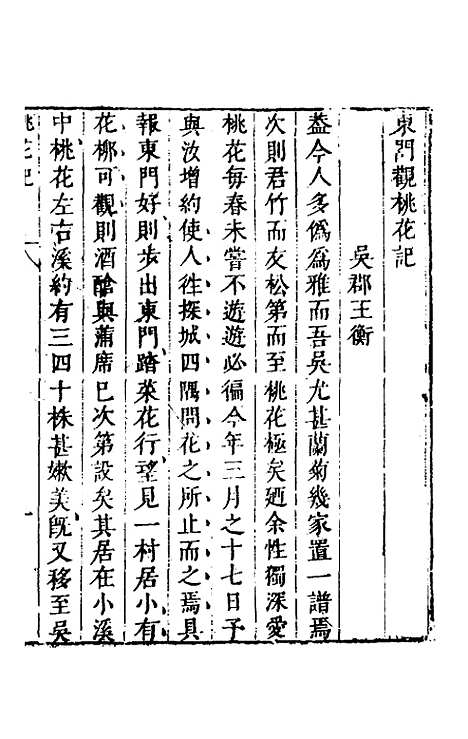 東門觀桃花記
吳郡王衡
葢今人多僞爲雅而吾吳尤甚蘭菊幾家置一譜焉
次則君竹而友松第而至桃花極矣廼余性獨深愛
桃花每春未嘗不遊遊必徧今年三月之十七日予
與汝增約使人徃探城四隅問花之所止而之焉具
報東門好則步出東門踏菜花行望見一村居小有
花桺可觀則酒鎗與蒲席已次第設矣其居在小溪
中桃花左右溪約有三四十株甚嫰美旣又移至吳
桃花記
一